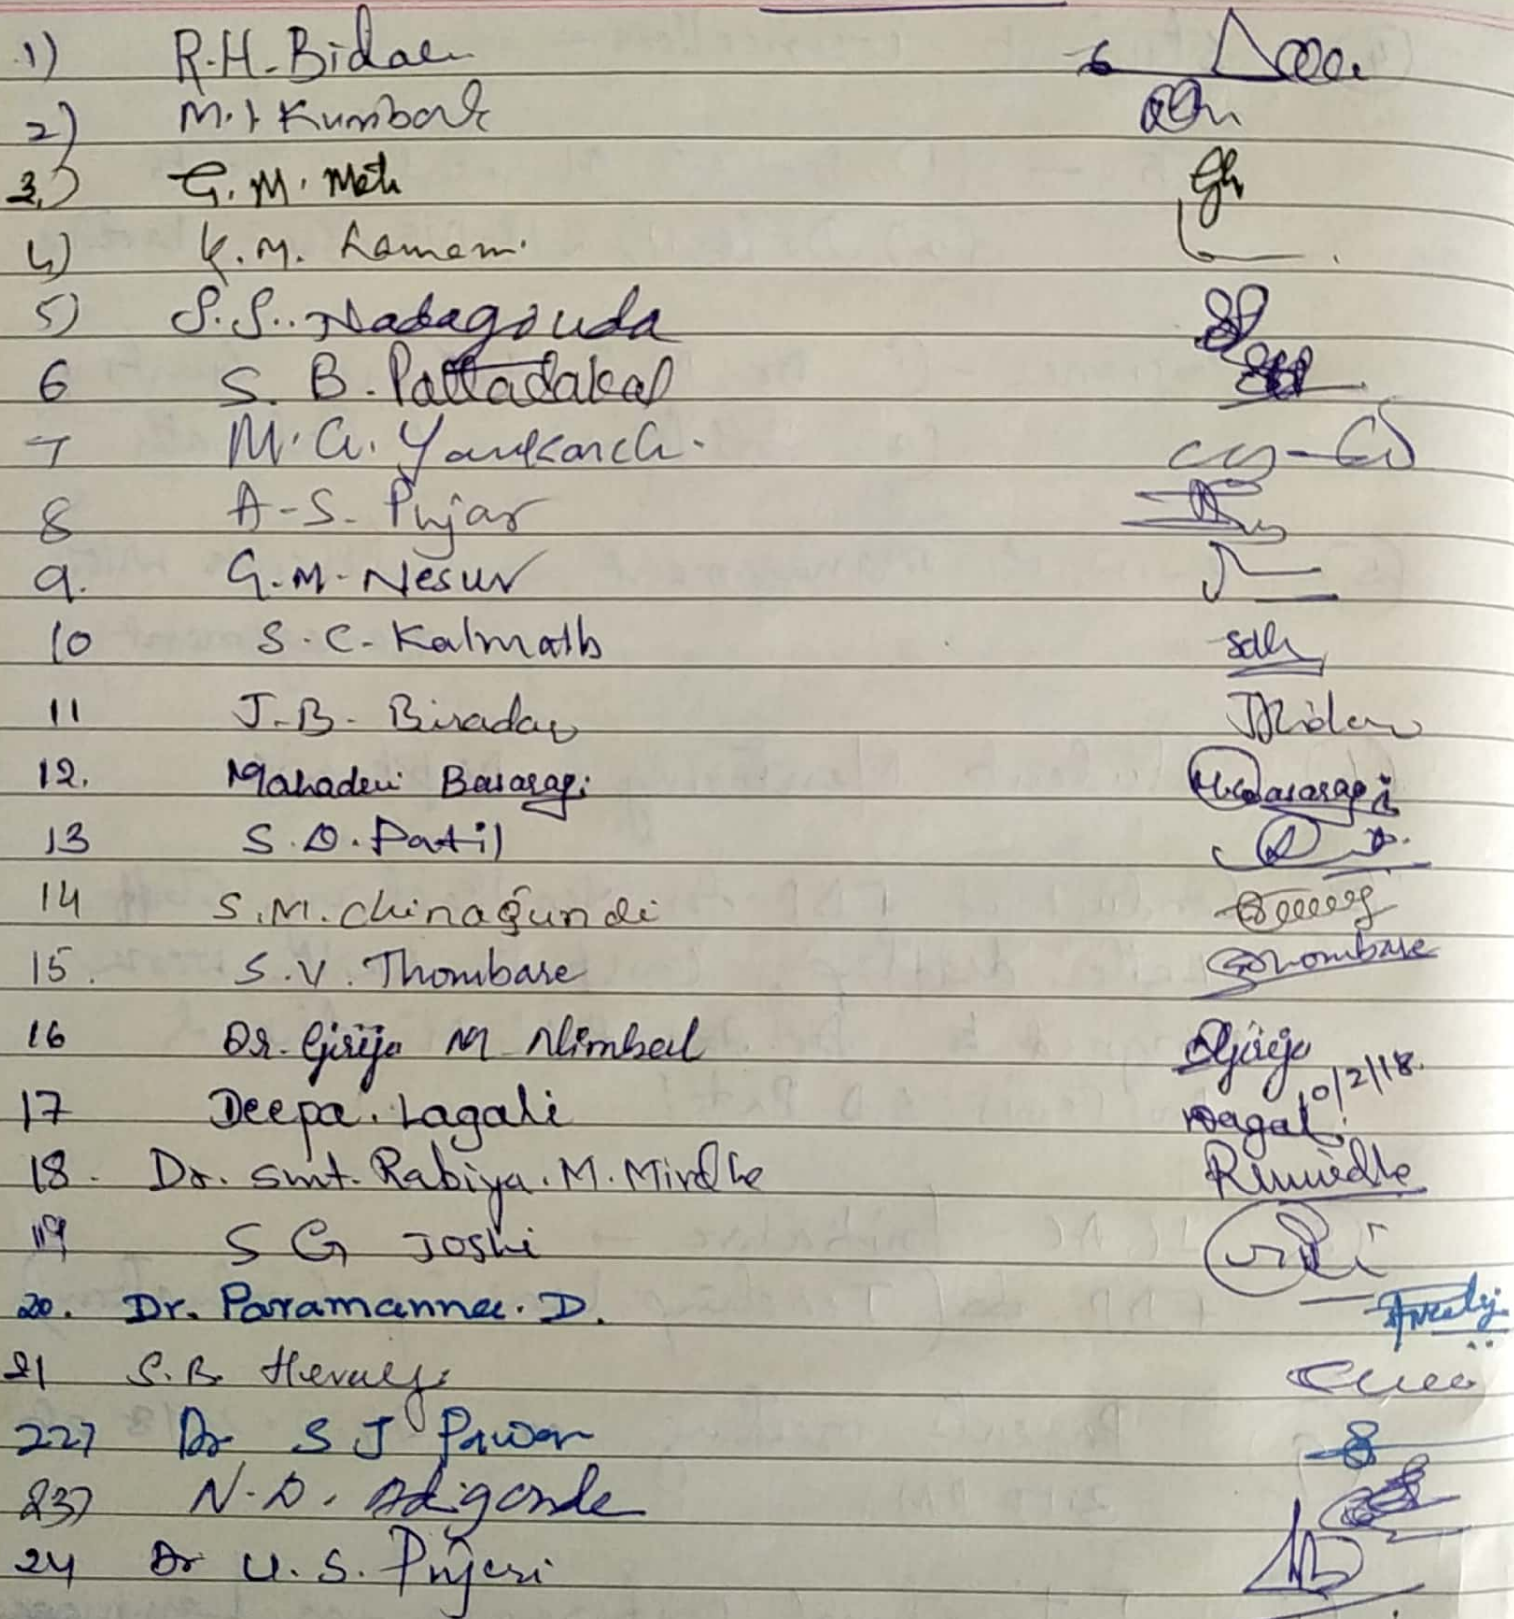 1) R.H. Bidari
2) M. I Kumbar
3.) G. M. Meti
4) K. M. Lamani
5) S. S. Nadagouda
6 S. B. Pattadakal
7 M. G. Yankanchi
8 A-S- Pujar
9. G-M- Nesur
10 S.C- Kalmath sdh
11 J-B- Biradar
12. Mahadevi Basaragi M.Basaragi
13 S.D. Patil
14 S.M. Chinagundi
15. S.V. Thombare SThombare
16 Dr. Girija M Nimbal Girija
10/2/18.
17 Deepa. Lagali Dagali
18. Dr. Smt. Rabiya. M. Mirdhe RMMirdhe
19 S G Joshi
20. Dr. Paramanna. D.
21 S.B.
22) Dr S J Pawar
23) N.D. Adigonda
24 Dr U.S. Pujeri